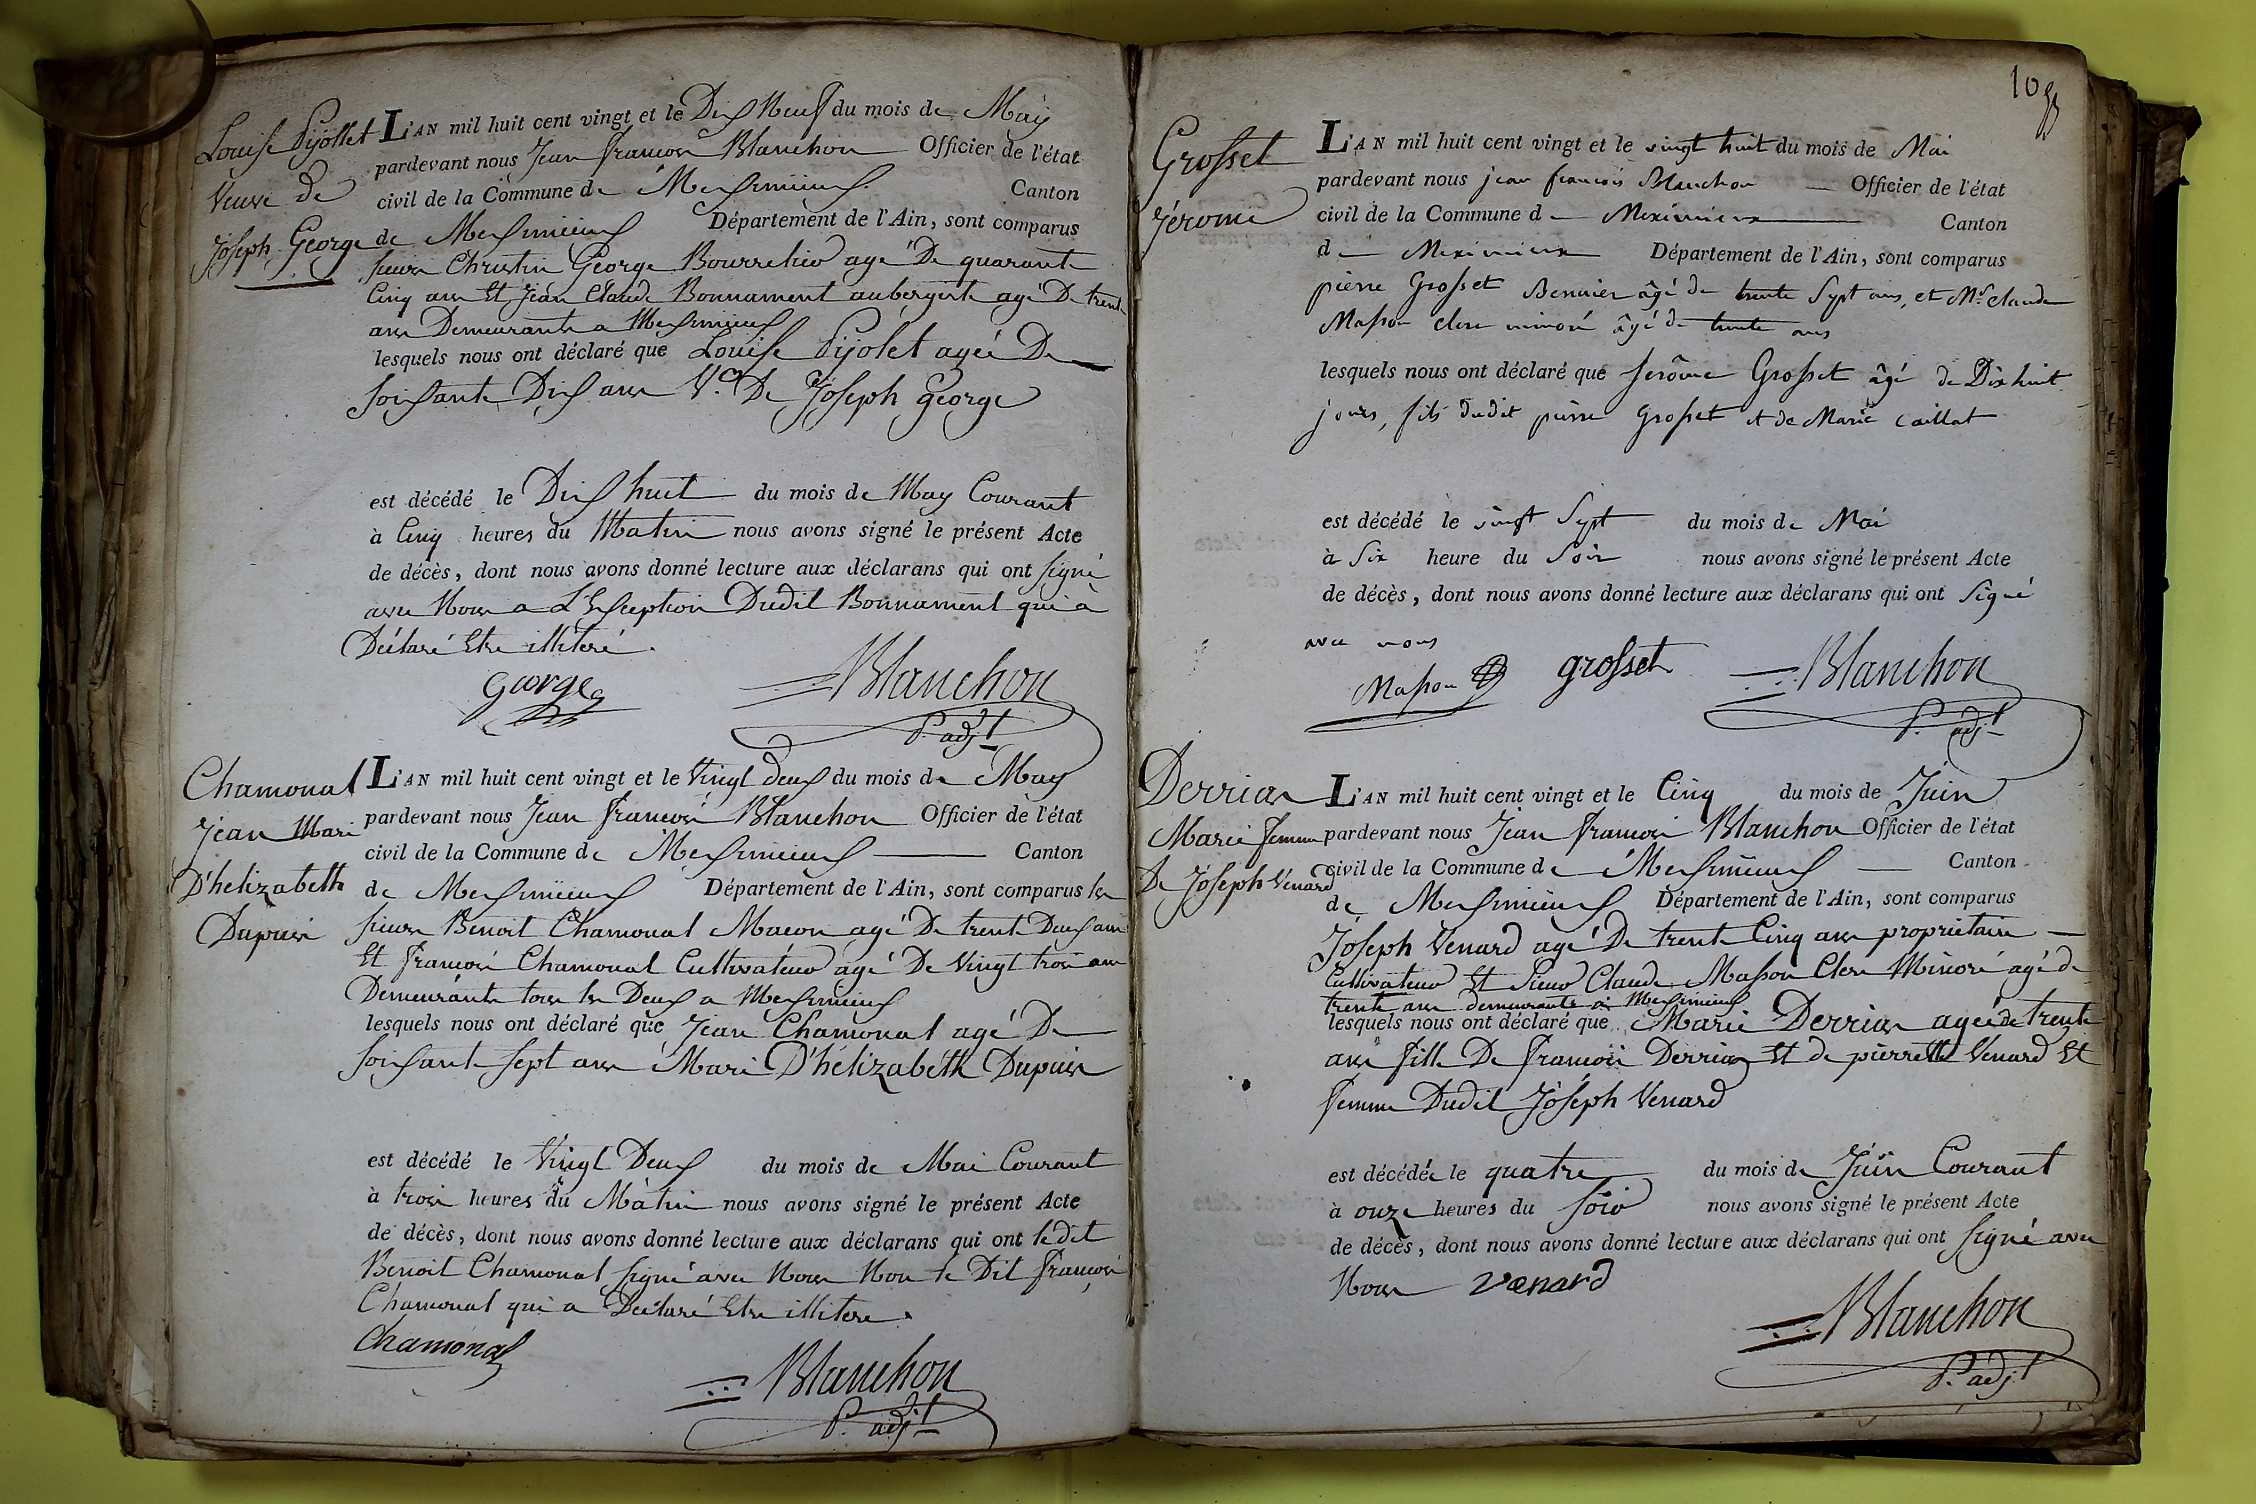 Louise Pijollet
Veuve de
Joseph George
L'AN mil huit cent vingt et le Dix Neuf du mois de May
pardevant nous Jean françois Blanchon Officier de l'état
civil de la Commune de Meximieux Canton
de Meximieux Département de l'Ain, sont comparus
sieurs Christin George Bourrelier agé De quarante
Cinq ans Et Jean Claude Bonnament aubergiste agé De trente
ans Demeurants a Meximieux
lesquels nous ont déclaré que Louise Pijolet agée De
soixante Dix ans Ve De Joseph George
est décédé le Dix huit du mois de May Courant
à Cinq heures du Matin nous avons signé le présent Acte
de décès, dont nous avons donné lecture aux déclarans qui ont signé
avec Nous a L'Exception Dudit Bonnament qui a
Déclaré Etre illiteré.
George
Blanchon
P. adjt
Chamonal
Jean Mari
D'helizabeth
Dupuis
L'AN mil huit cent vingt et le Vingt deux du mois de May
pardevant nous Jean françois Blanchon Officier de l'état
civil de la Commune de Meximieux Canton
de Meximieux Département de l'Ain, sont comparus les
sieurs Benoit Chamonal Macon agé De trente Deux ans
Et françois Chamonal Cultivateur agé De Vingt trois ans
Demeurants tous les Deux a Meximieux
lesquels nous ont déclaré que Jean Chamonal agé De
soixante sept ans Mari D'hélizabeth Dupuis
est décédé le Vingt Deux du mois de Mai Courant
à trois heures du Matin nous avons signé le présent Acte
de décès, dont nous avons donné lecture aux déclarans qui ont ledit
Benoit Chamonal signé avec Nous Non le Dit françois
Chamonal qui a Déclaré Etre illitere.
Chamonal
Blanchon
P. adjt
10
Grosset
Jérome
L'AN mil huit cent vingt et le vingt huit du mois de Mai
pardevant nous jean françois Blanchon Officier de l'état
civil de la Commune de Meximieux Canton
de Meximieux Département de l'Ain, sont comparus
pierre Grosset âgé de trente Sept ans, et Mr Claude
Masson clerc minoré âgé de trente ans
lesquels nous ont déclaré que Jerôme Grosset âgé de Dix huit
jours, fils dudit pierre Grosset et de Marie Caillat
est décédé le vingt Sept du mois de Mai
à Six heure du Soir nous avons signé le présent Acte
de décès, dont nous avons donné lecture aux déclarans qui ont Signé
avec nous
Masson grosset Blanchon
P. adjt
Derrias
Marie femme
De Joseph Venard
L'AN mil huit cent vingt et le Cinq du mois de Juin
pardevant nous Jean françois Blanchon Officier de l'état
civil de la Commune de Meximieux Canton
de Meximieux Département de l'Ain, sont comparus
Joseph Venard agé De trente Cinq ans proprietaire
Cultivateur Et Sieur Claude Masson Clerc Minoré agé de
trente ans demeurants a Meximieux
lesquels nous ont déclaré que Marie Derrias agée de trente
ans fille De françois Derrias Et de pierrette Venard Et
femme Dudit Joseph Venard
est décédée le quatre du mois de Juin Courant
à onze heures du soir nous avons signé le présent Acte
de décès, dont nous avons donné lecture aux déclarans qui ont signé avec
Nous venard
Blanchon
P. adjt